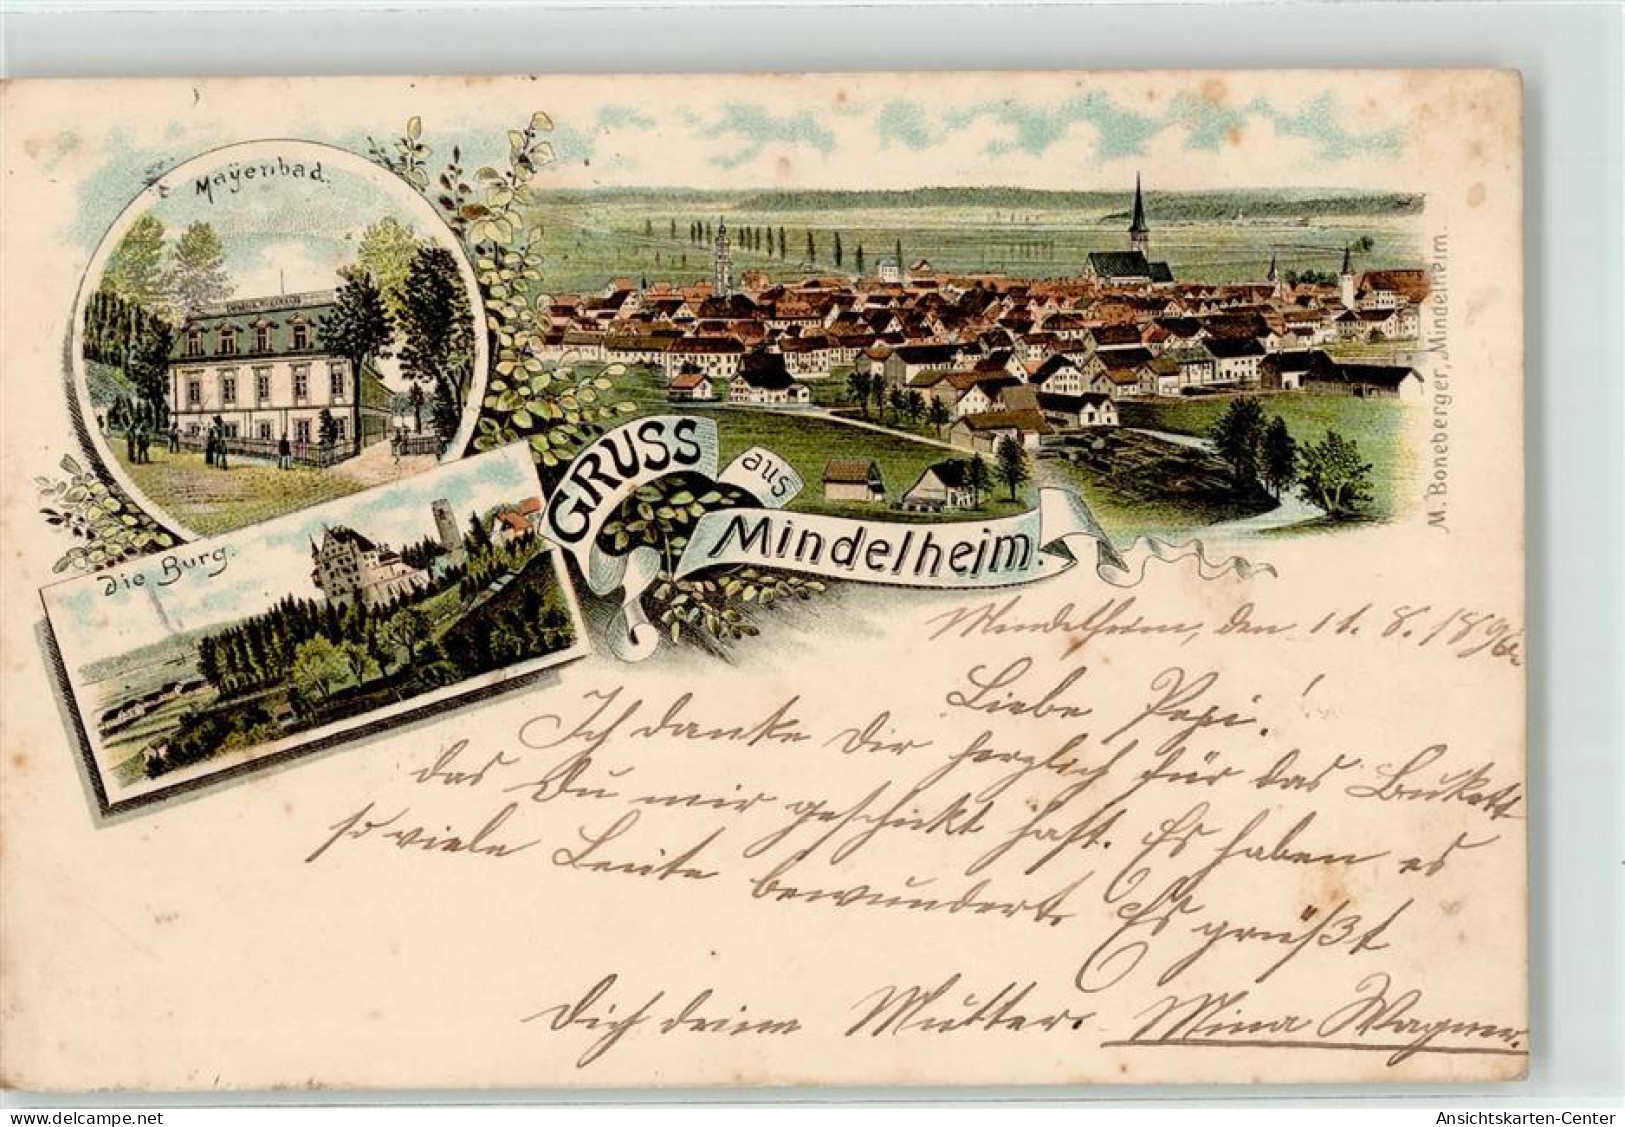 Mayenbad.
Die Burg.
GRUSS
aus
Mindelheim.
M. Boneberger, Mindelheim.
Mindelheim, den 11. 8. 1896
Liebe Pepi!
Ich danke Dir herzlich für das Bukett
das Du mir geschickt hast. Es haben es
so viele Leute bewundert. Es grüßt
Dich deine Mutter. Mina Wagner.
Ansichtskarten-Center